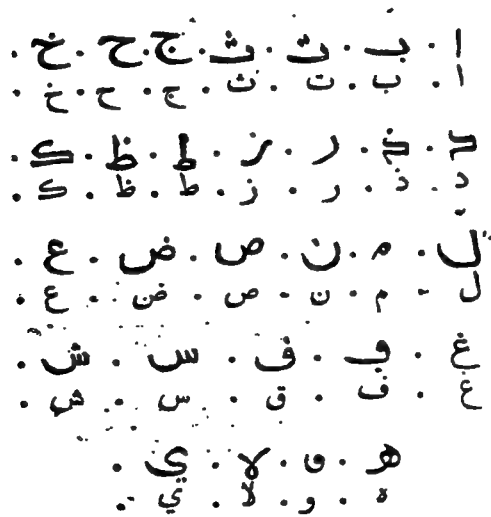 ا . ب . ت . ث . ج . ح . خ .
ا . ب . ت . ث . ج . ح . خ .
د . ذ . ر . ز . ط . ظ . ك .
د . ذ . ر . ز . ط . ظ . ك .
ل . م . ن . ص . ض . ع .
ل . م . ن . ص . ض . ع .
غ . ڢ . ڧ . س . ش .
غ . ف . ق . س . ش .
ه . و . لا . ي .
ه . و . لا . ي .